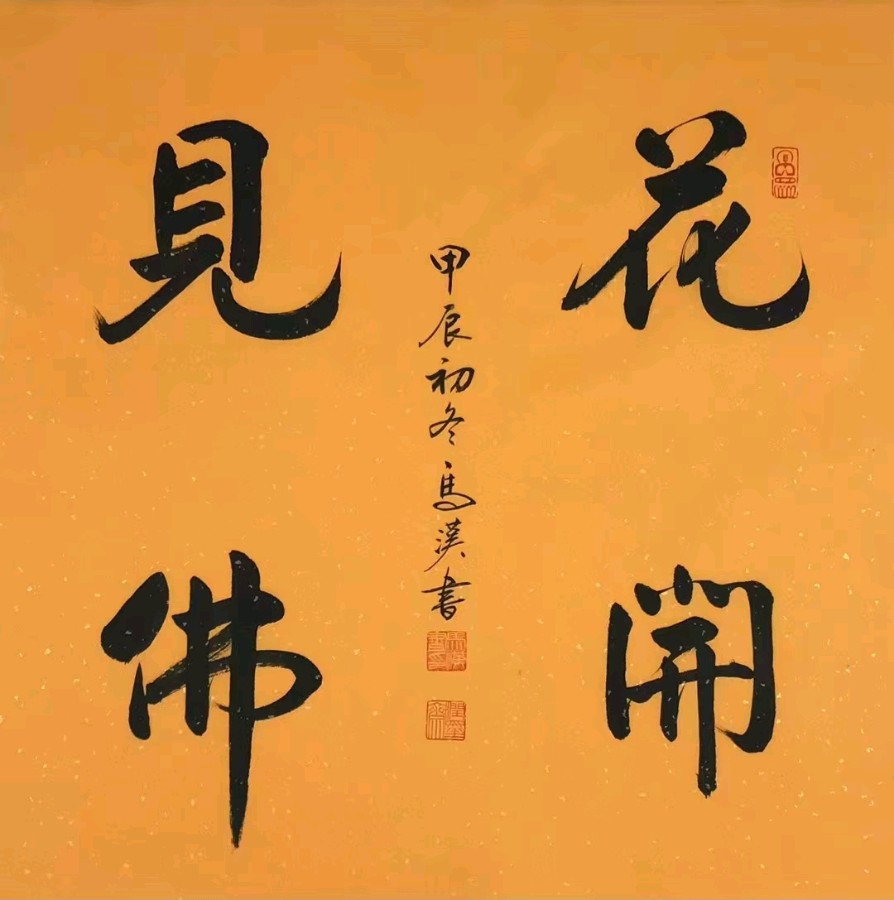 花開
見佛
甲辰初冬馬漢書